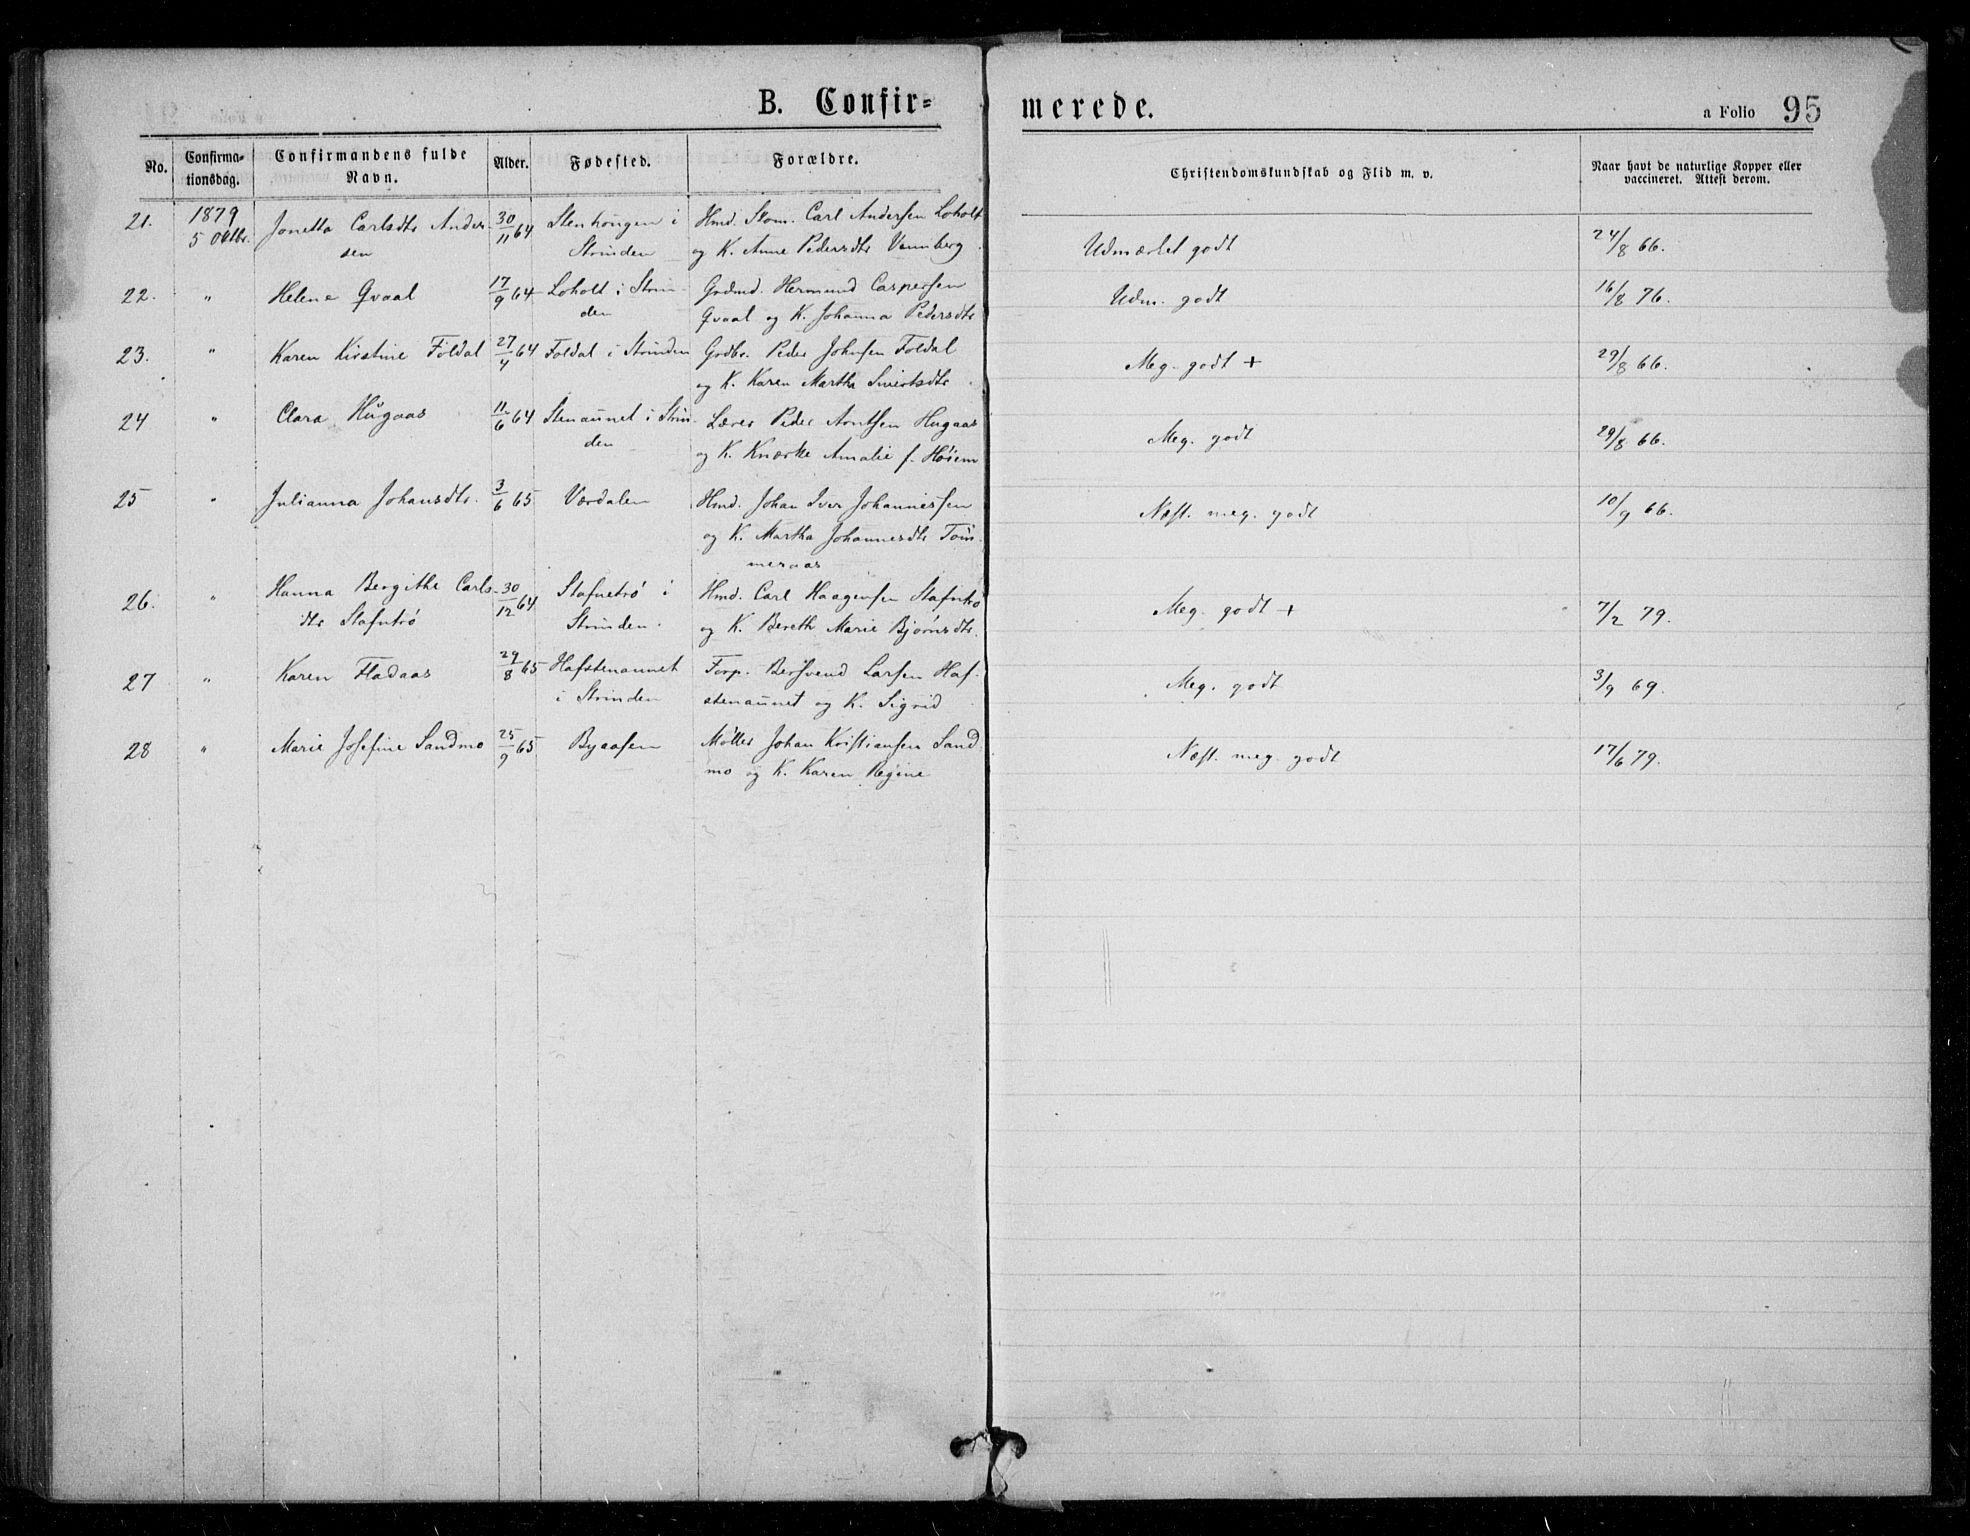 B. Confir=
merede.
a Folio 95
No.
Confirma-
tionsdag.
Confirmandens fulde
Navn.
Alder.
Fødested.
Forældre.
Christendomskundskab og Flid m. v.
Naar havt de naturlige Kopper eller
vaccineret. Attest derom.
21. 1879 Jonetta Carlsdtr Ander- 30/11 64 Stenhougen i Hmd. Stom. Carl Andersen Loholt
5 Oktbr. sen Strinden og K. Anne Pedersdtr Vannberg Udmærket godt 24/8 66.
22. " Helene Qvaal 17/9 64 Loholt i Strin- Grdmd. Hermund Caspersen Udm. godt 16/8 76.
den Qvaal og K. Johanna Pedersdtr
23. " Karen Kirstine Foldal 27/4 64 Foldal i Strinden Grdbr. Peder Johnsen Foldal Meg. godt + 29/8 66.
og K. Karen Martha Sivertsdtr
24 " Clara Hugaas 11/6 64 Stenaunet i Strin- Lærer Peder Arntsen Hugaas Meg. godt 29/8 66.
den og K. Amalie f. Høiem
25 " Julianna Johansdtr. 3/6 65 Værdalen Hmd. Johan Iver Johannessen Næst. meg. godt 10/9 66.
og K. Martha Johannesdtr Tøm-
meraas
26. " Hanna Bergithe Carls- 30/12 64 Stafnetrø i Hmd. Carl Haagensen Stafntrø Meg. godt + 7/2 79.
dtr Stafntrø Strinden. og K. Bereth Marie Bjørnsdtr.
27 " Karen Fladaas 29/8 65 Hafstenaunet Forp. Bersvend Larsen Haf- Meg. godt 3/9 69.
i Strinden stenaunet og K. Sigrid
28 " Marie Josefine Sandmo 25/9 65 Byaasen Møller Johan Kristiansen Sand- Næst. meg. godt 17/6 79.
mo og K. Karen Regine